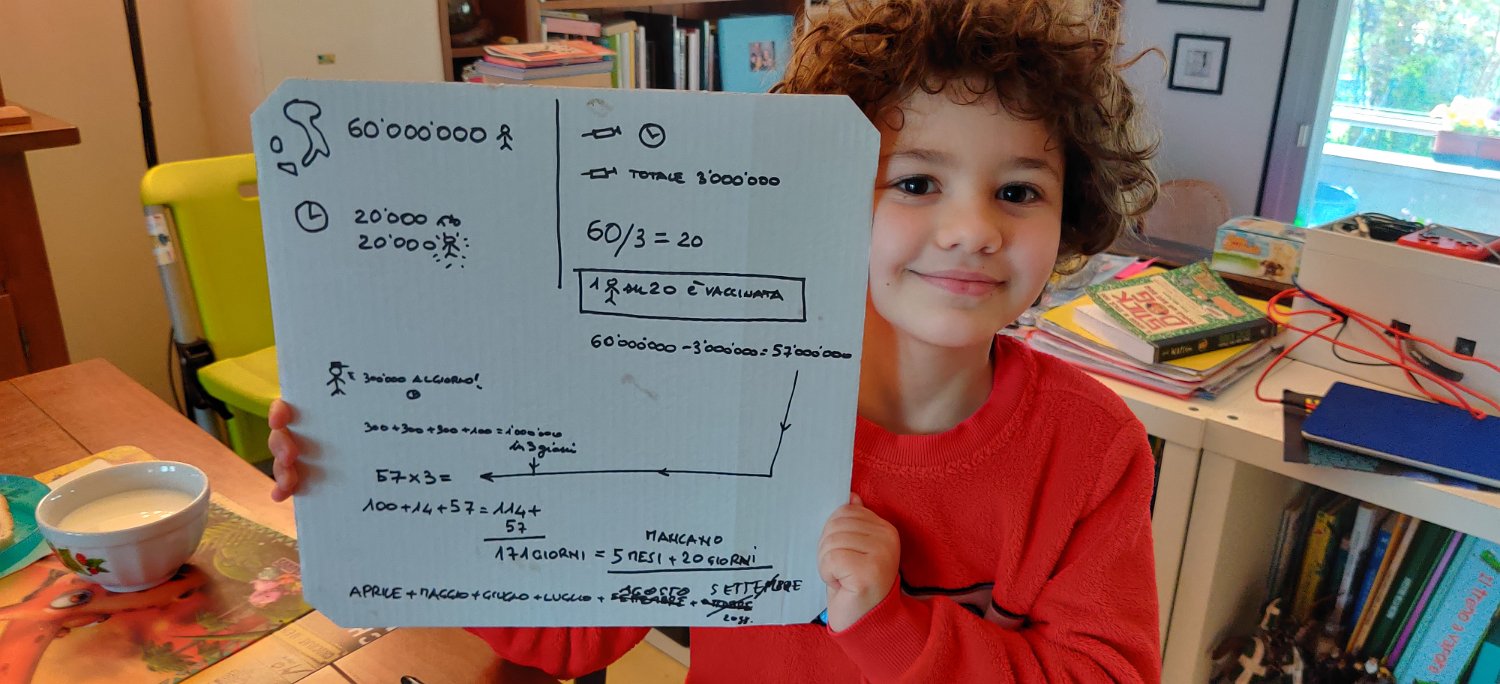 60'000'000
20'000
20'000
TOTALE 3'000'000
60/3 = 20
1 SU 20 È VACCINATA
60'000'000 - 3'000'000 = 57'000'000
300'000 AL GIORNO!
300+300+300+100 = 1'000'000
in 3 giorni
57x3=
100+14+57= 114+
57
171 GIORNI = 5 MESI + 20 GIORNI
MANCANO
APRILE + MAGGIO + GIUGNO + LUGLIO + AGOSTO SETTEMBRE
SETTEMBRE + OTTOBRE
20gg.
SICK
DOG
Il treno a vapore